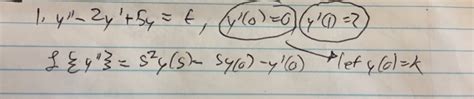 1. y''-2y'+5y = t, y'(0)=0 y'(1)=2
ℒ{y''} = s²y(s) - sy(0) - y'(0) → let y(0)=k